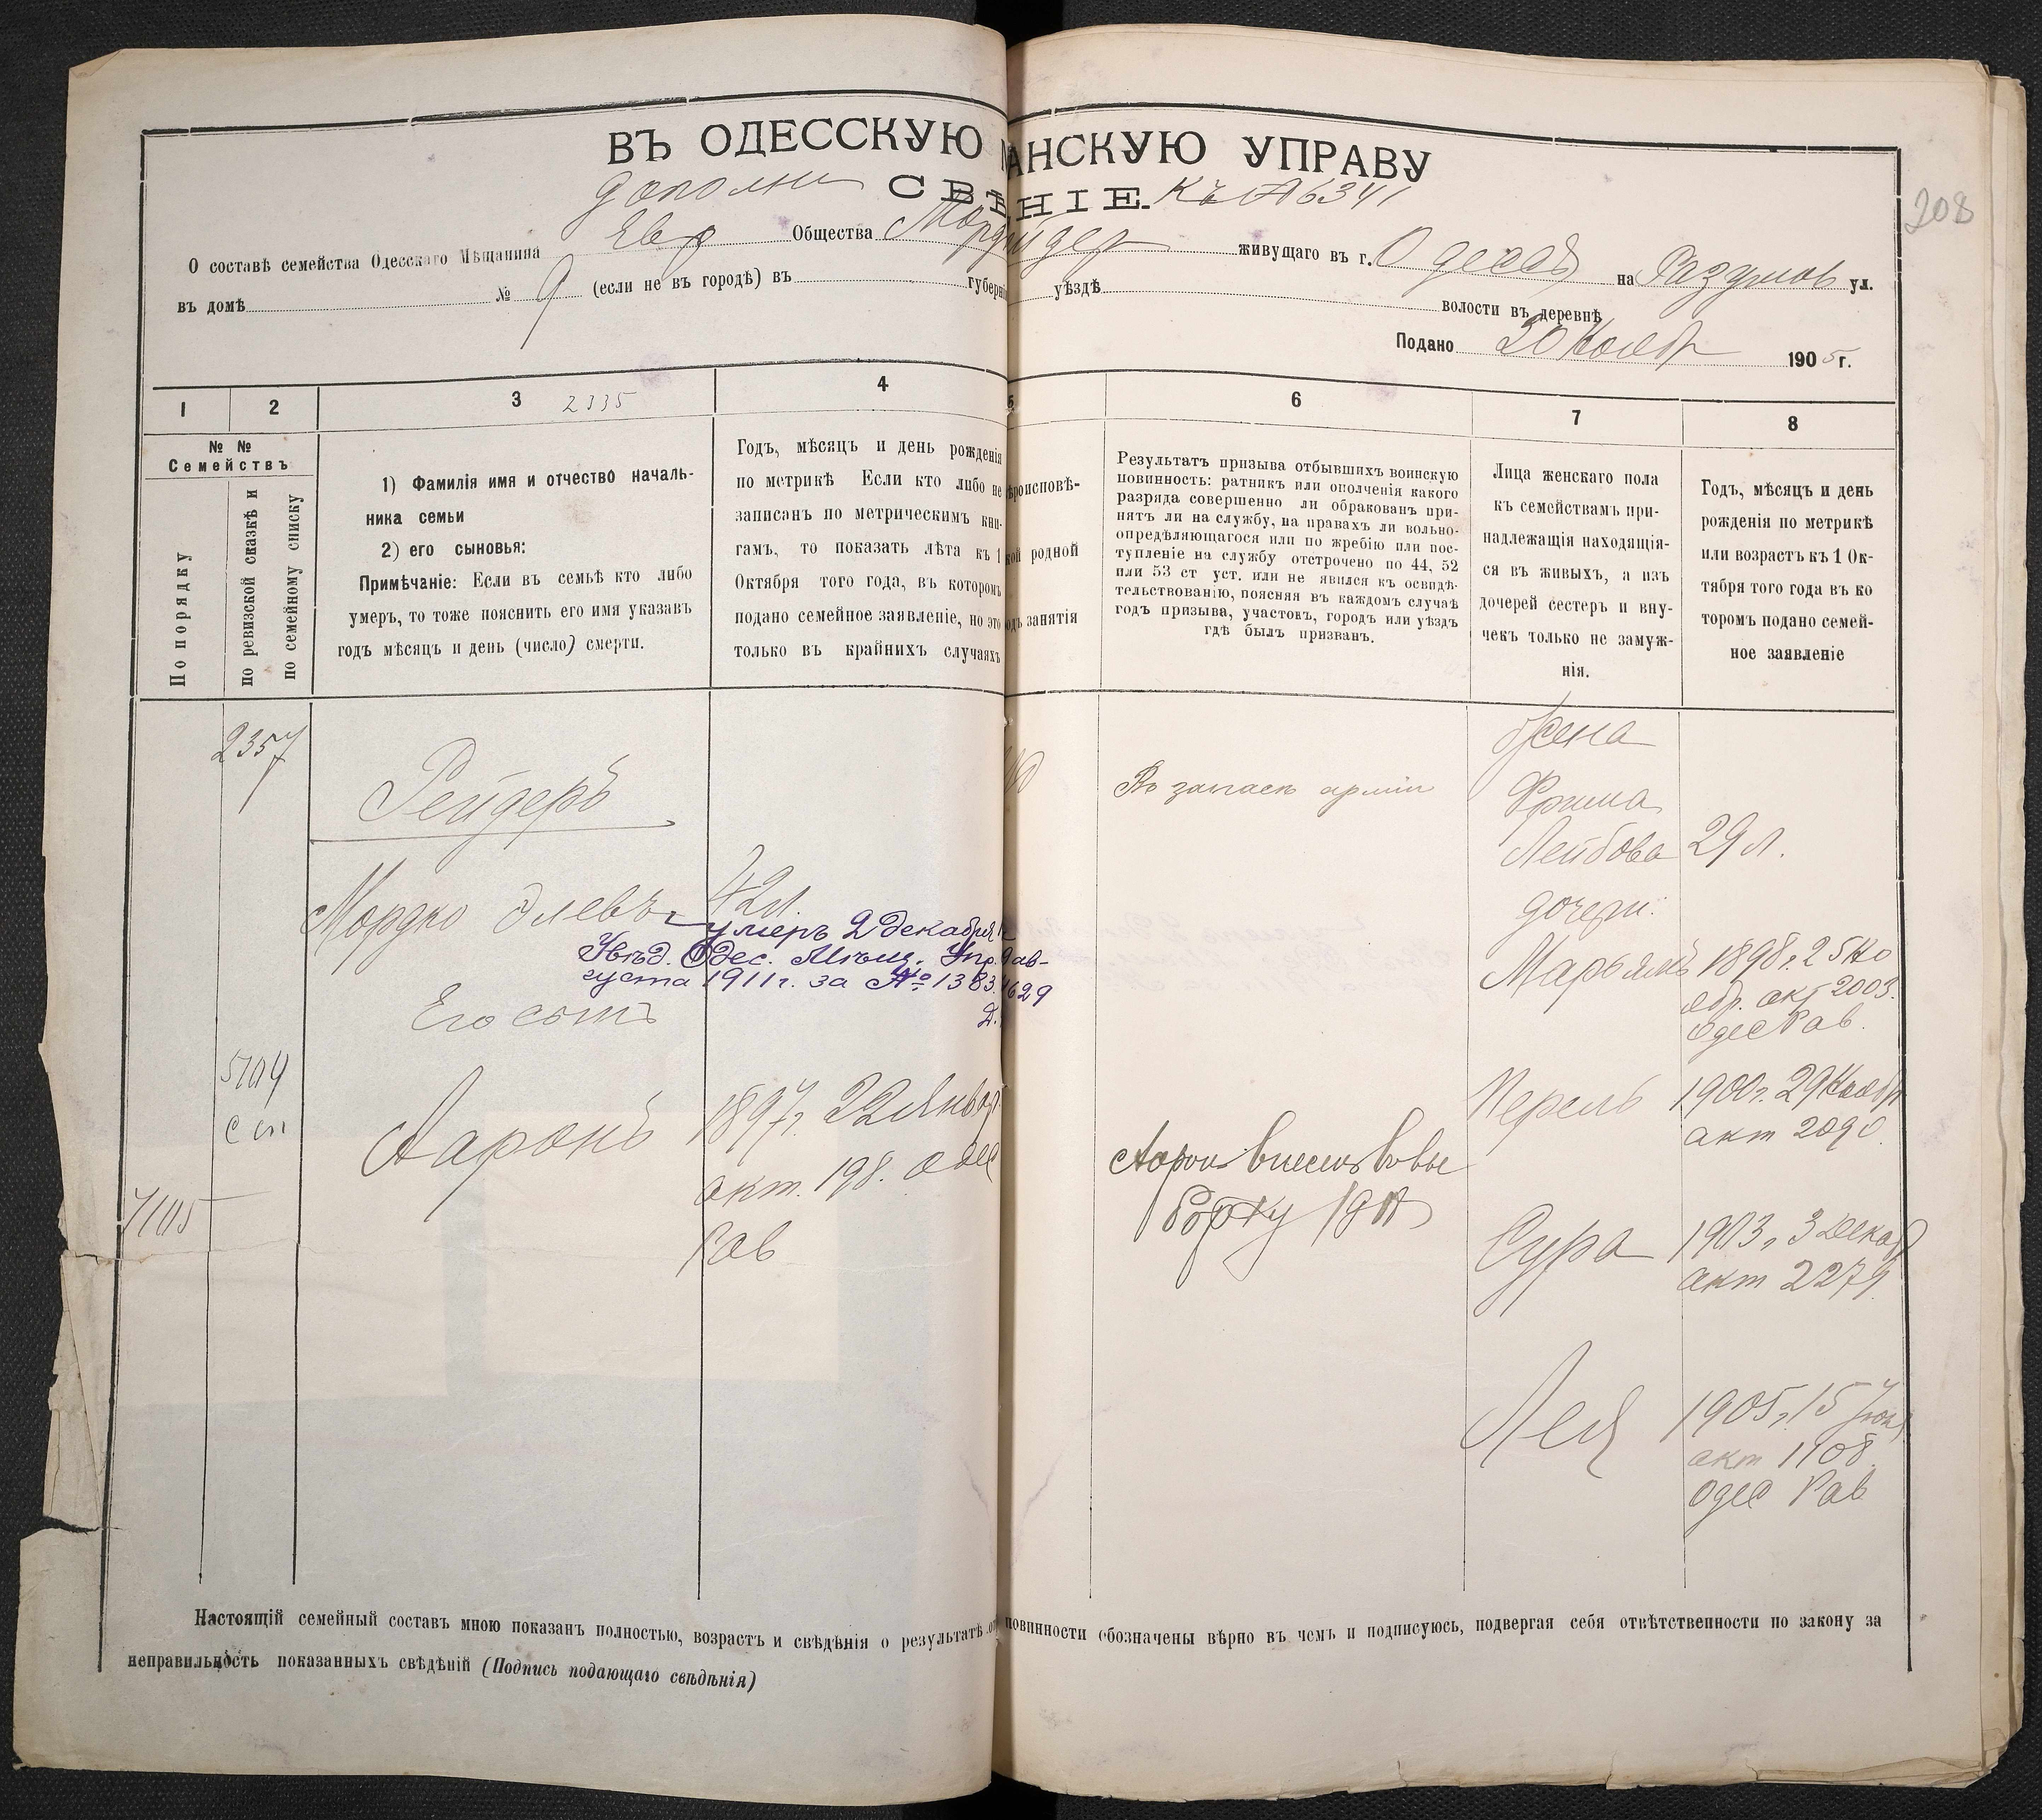 ВЪ ОДЕССКУЮ АНСКУЮ УПРАВУ
дополни СВѢ НІЕ. къ № 6341
208
О составѣ семейства Одесскаго Мѣщанина Евр Общества Морд йдер живущаго въ г. Одессѣ на Раздѣлов ул.
въ домѣ № 9 (если не въ городѣ) въ губерні уѣздѣ волости въ деревнѣ
Подано 30 Ноябр 1905 г.
1 2 3 2335 4 5 6 7 8
№ № Семействъ
По порядку
по ревизской сказкѣ и
по семейному списку
1) Фамилія имя и отчество началь-
ника семьи
2) его сыновья:
Примѣчаніе: Если въ семьѣ кто либо
умеръ, то тоже пояснить его имя указавъ
годъ мѣсяцъ и день (число) смерти.
Годъ, мѣсяцъ и день рожденія
по метрикѣ Если кто либо не
записанъ по метрическимъ кни-
гамъ, то показать лѣта къ 1
Октября того года, въ которомъ
подано семейное заявленіе, но это
только въ крайнихъ случаяхъ
ѣроисповѣ-
кой родной
одъ занятія
Результатъ призыва отбывшихъ воинскую
повинность: ратникъ или ополченія какого
разряда совершенно ли обракованъ при-
нятъ ли на службу, на правахъ ли вольно-
опредѣляющагося или по жребію или пос-
тупленіе на службу отстрочено по 44, 52
или 53 ст уст. или не явился къ освидѣ-
тельствованію, поясняя въ каждомъ случаѣ
годъ призыва, участокъ, городъ или уѣздъ
гдѣ былъ призванъ.
Лица женскаго пола
къ семействамъ при-
надлежащія находящія-
ся въ живыхъ, а изъ
дочерей сестеръ и вну-
чекъ только не замуж-
нія.
Годъ, мѣсяцъ и день
рожденія по метрикѣ
или возрастъ къ 1 Ок-
тября того года въ ко
торомъ подано семей-
ное заявленіе
2357
Рейдеръ
Мордко Элевъ 42 л.
умеръ 2 декабря
Увѣд. Одес. Мѣщ. Упр. 9 ав-
густа 1911 г. за № 13834629
Его сынъ
5109
7105
Ааронъ
1897 г. 22 Январ
акт. 198. Одес
Рав
Въ запасѣ арміи
Ааронъ внесенъ въ вы
борку
Жена
Фрима
Лейбова 29 л.
дочери:
Марьямъ 1898 г. 25 Но
ябр. акт 2003.
Одес Рав.
Перель 1900 г. 29 Ноябр
акт 2090.
Сура 1903 г. 3 Декаб
акт 2279.
Лея 1905 г. 15 Іюня
акт 1108
Одес Рав
Настоящій семейный составъ мною показанъ полностью, возрастъ и свѣдѣнія о результатѣ от повинности обозначены вѣрно въ чемъ и подписуюсь, подвергая себя отвѣтственности по закону за
неправильность показанныхъ свѣдѣній (Подпись подающаго свѣдѣнія)